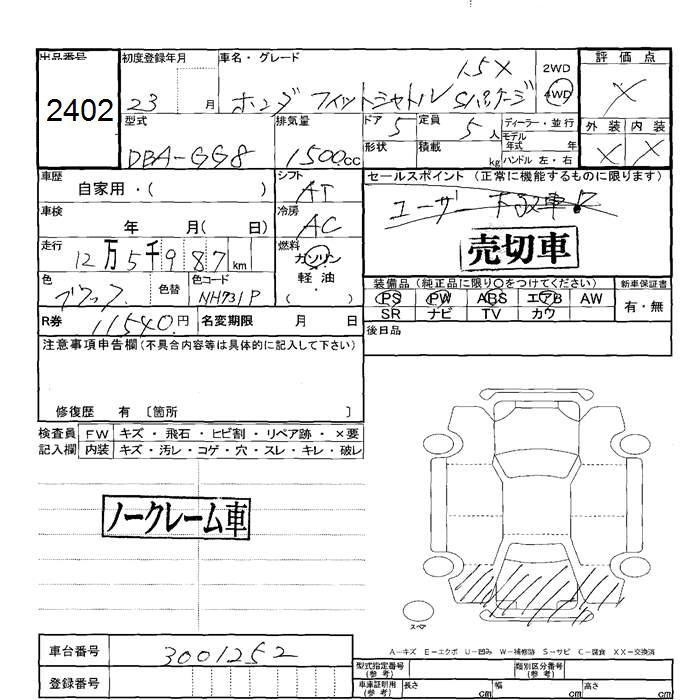 出品番号 2402
初度登録年月 23 月
車名・グレード 1.5X
ホンダ フィットシャトル Sパッケージ
2WD
4WD
評価点 X
外装 内装
X X
型式 DBA-GG8
排気量 1500cc
ドア 5 定員 5人
形状 積載 kg
ディーラー・並行
モデル年式 年式
ハンドル 左・右
車歴 自家用・( )
シフト AT
セールスポイント(正常に機能するものに限ります)
ユーザー下取車!
売切車
車検 年 月( 日)
冷房 AC
走行 12万5千987km
燃料 ガソリン
軽油
( )
色 ブラック 色替 色コード NH731P
装備品(純正品に限り○をつけてください)
新車保証書
PS PW ABS エアB AW
SR ナビ TV カワ
有・無
R券 11540円 名変期限 月 日
後日品
注意事項申告欄(不具合内容等は具体的に記入して下さい)
修復歴 有〔箇所 〕
検査員 FW キズ・飛石・ヒビ割・リペア跡・×要
記入欄 内装 キズ・汚レ・コゲ・穴・スレ・キレ・破レ
ノークレーム車
スペア
A-キズ E-エクボ U-凹み W-補修跡 S-サビ C-腐食 XX-交換済
車台番号 3001252
登録番号
型式指定番号(参考) 類別区分番号(参考)
車庫証明用(参考) 長さ cm 幅 cm 高さ cm